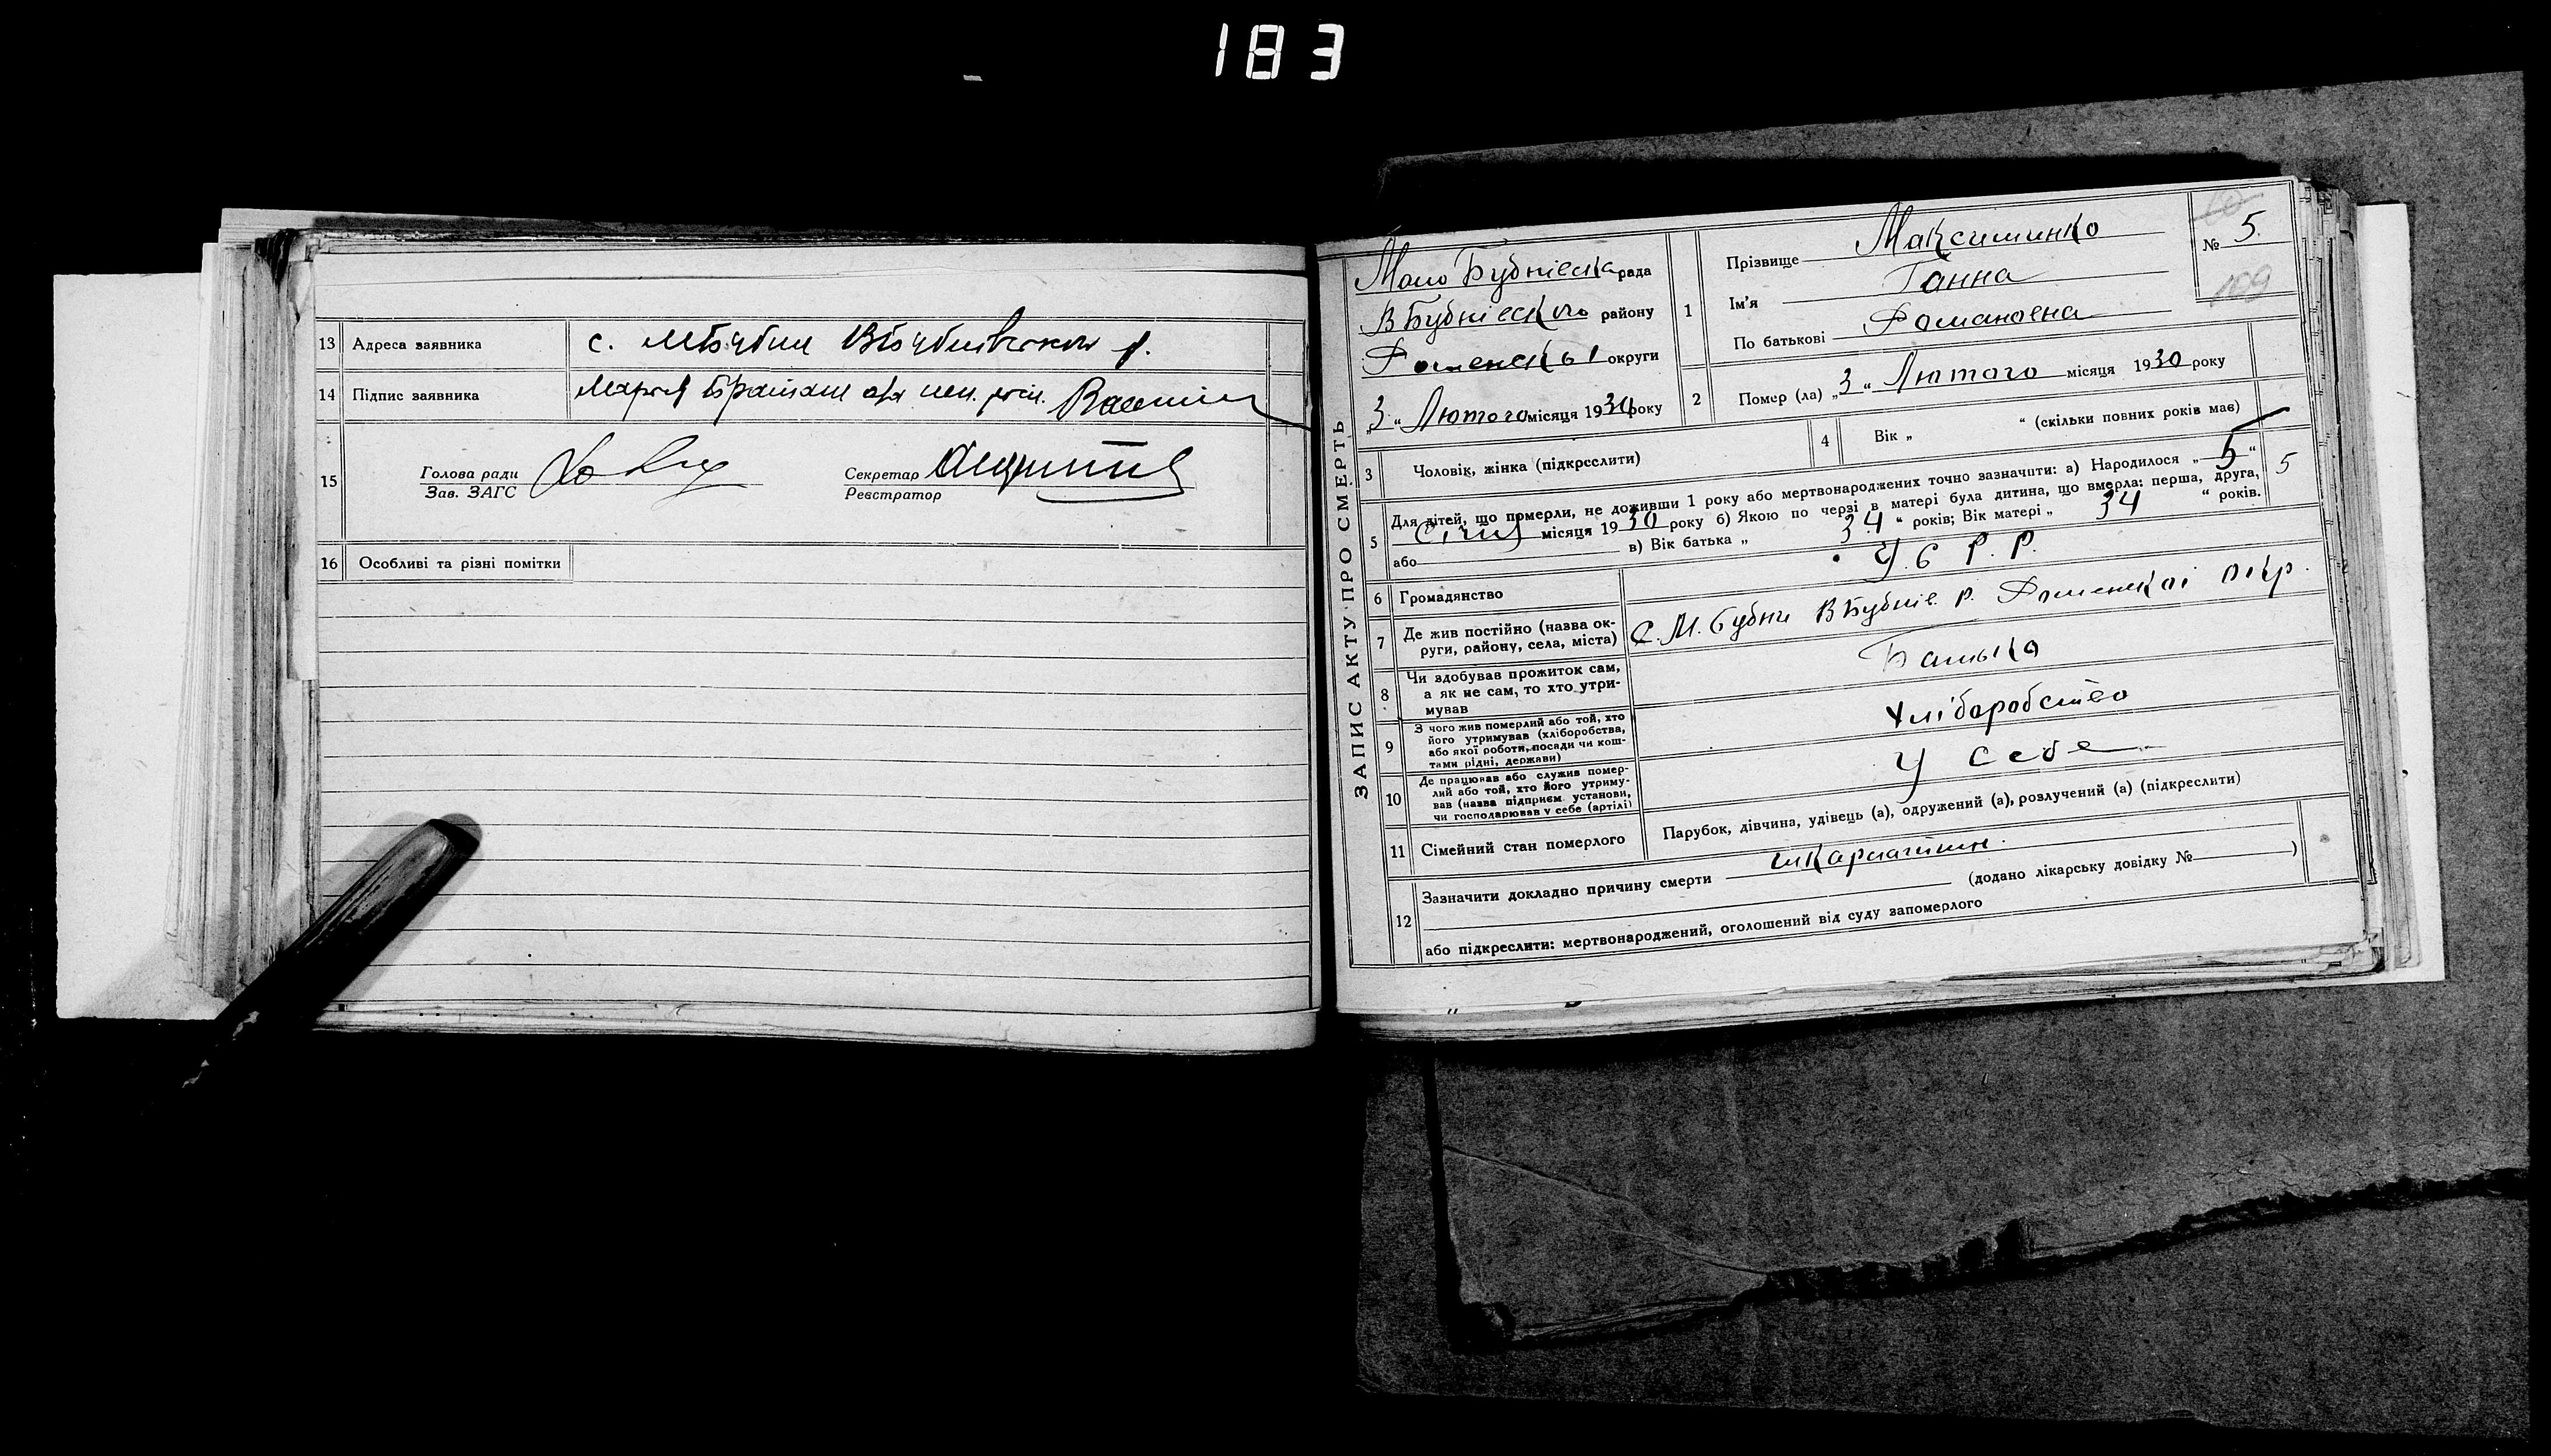 183
13 Адреса заявника с.
14 Підпис заявника
15 Голова ради
Зав. ЗАГС
Секретар
Реєстратор
16 Особливі та різні помітки
ЗАПИС АКТУ ПРО СМЕРТЬ
Мало Бубнівска рада
В Бубнівского району
Роменськоі округи
"3" Лютого місяця 1930 року
1 Прізвище Максиминко
Ім'я Ганна
По батькові Романовна
№ 5.
109
2 Помер (ла) "3" Лютого місяця 1930 року
3 Чоловік, жінка (підкреслити)
4 Вік „ “ (скільки повних років має)
5 Для дітей, що померли, не доживши 1 року або мертвонароджених точно зазначити: а) Народилося „5“
Січня місяця 1930 року б) Якою по черзі в матері була дитина, що вмерла: перша, друга,
або в) Вік батька „34“ років; Вік матері „34“ років.
5
6 Громадянство У. С Р. Р.
7 Де жив постійно (назва округи, району, села, міста) С. М. Бубни ВБубнів. р. Роменскоі окр.
8 Чи здобував прожиток сам,
а як не сам, то хто утри-
мував Батько
9 З чого жив померлий або той, хто
його утримував (хліборобства,
або якої роботи, посади чи кош-
тами рідні, держави) Хліборобство
10 Де працював або служив помер-
лий або той, хто його утриму-
вав (назва підприєм. установи,
чи господарював у себе (артілі) У себе
11 Сімейний стан померлого Парубок, дівчина, удівець (а), одружений (а), розлучений (а) (підкреслити)
12 Зазначити докладно причину смерти
(додано лікарську довідку № )
або підкреслити: мертвонароджений, оголошений від суду запомерлого